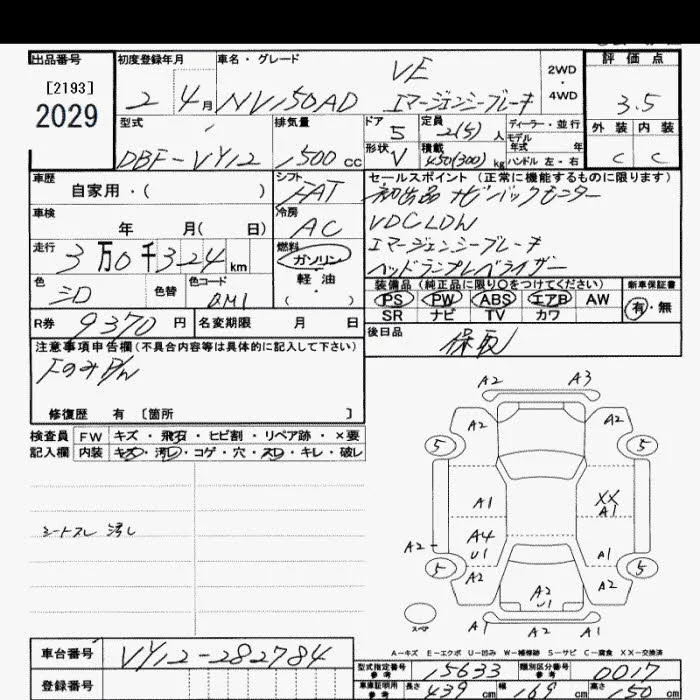 出品番号 初度登録年月 車名・グレード 評価点
[2193] VE 2WD
2029 2 4月 NV150AD エマージェンシーブレーキ ・4WD 3.5
型式 排気量 ドア 5 定員 2(5)人 ディーラー・並行 外装 内装
DBF-VY12 1500cc 形状 V 積載 450(300)kg モデル年式 年 ハンドル 左・右 C C
車歴 シフト セールスポイント (正常に機能するものに限ります)
自家用・( ) FAT 初出品 ナビ バックモニター
車検 冷房 VDC LDW
年 月( 日) AC エマージェンシーブレーキ
走行 燃料 ヘッドランプレベライザー
3万0千324km ガソリン
色 色替 色コード 軽・油 装備品 (純正品に限り○をつけてください) 新車保証書
シロ QM1 ( ) PS PW ABS エアB AW 有・無
SR ナビ TV カワ
R券 9370円 名変期限 月 日 後日品
保取
注意事項申告欄(不具合内容等は具体的に記入して下さい)
FのみP/W
修復歴 有 〔箇所 〕
検査員 FW キズ・飛石・ヒビ割・リペア跡・×要
記入欄 内装 キズ・汚レ・コゲ・穴・スレ・キレ・破レ
シートスレ 汚レ
A2 A3
A2 A2
5 5
A1 XX
A1
A4
A2 U1 A1
5 5
A2 A2 A2
U1
スペア A1 A2 A1
A-キズ E-エクボ U-凹み W-補修跡 S-サビ C-腐食 XX-交換済
車台番号 VY12-282784 型式指定番号 参考 15633 類別区分番号 参考 0017
登録番号 車庫証明用 参考 長さ 439cm 幅 169cm 高さ 150cm